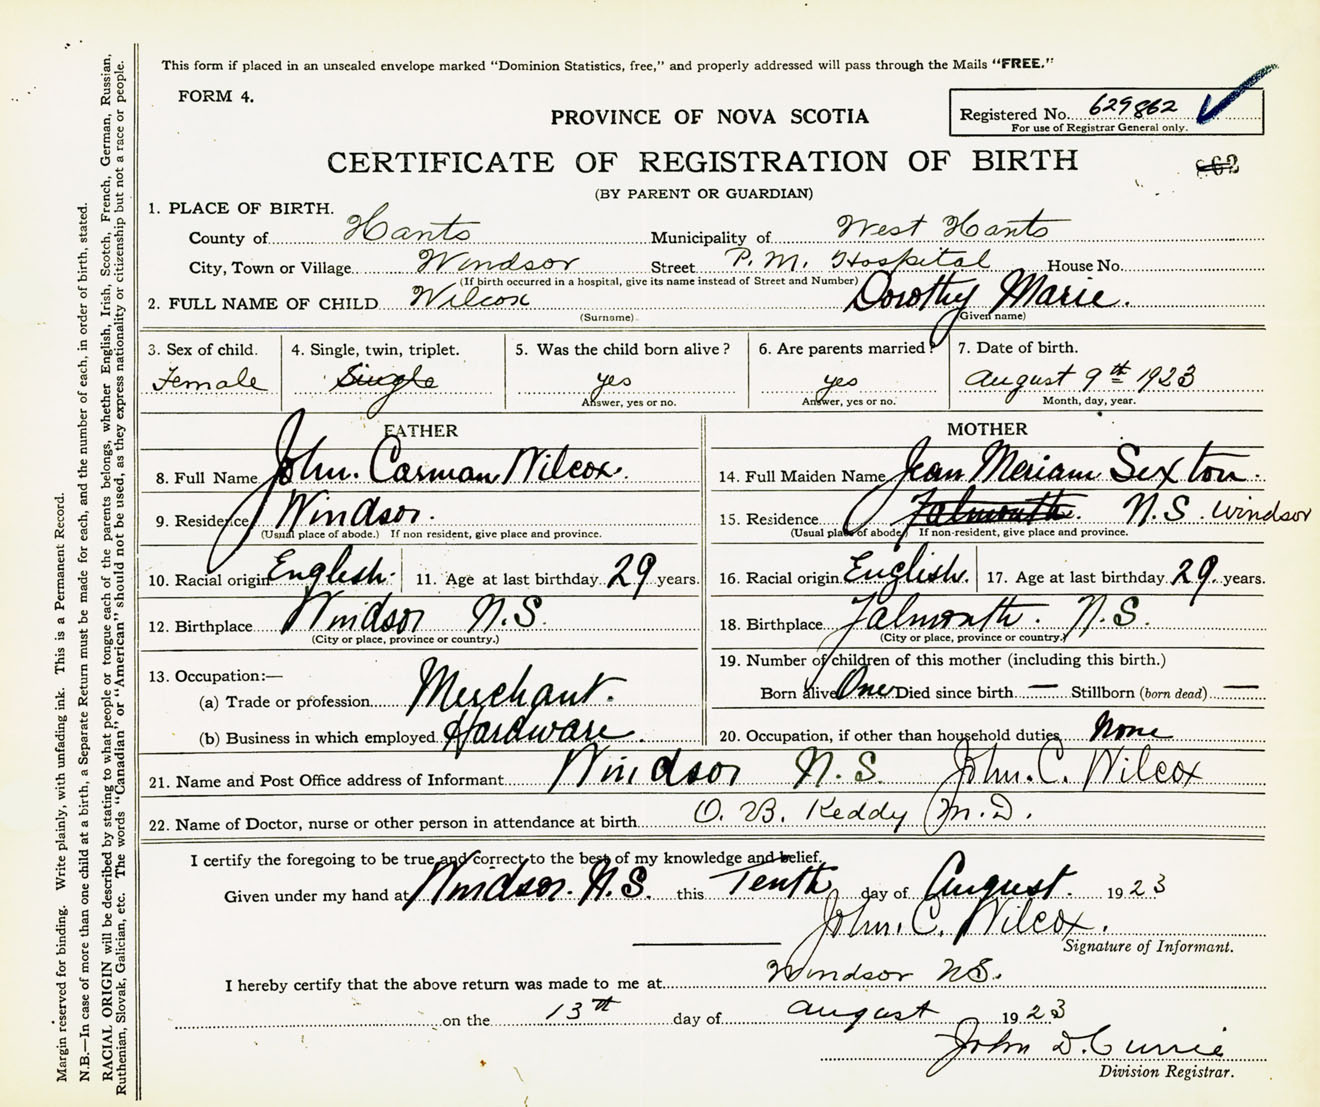 This form if placed in an unsealed envelope marked "Dominion Statistics, free," and properly addressed will pass through the Mails "FREE."
FORM 4.
PROVINCE OF NOVA SCOTIA
Registered No. 629862
For use of Registrar General only.
CERTIFICATE OF REGISTRATION OF BIRTH
862
(BY PARENT OR GUARDIAN)
1. PLACE OF BIRTH.
County of Hants Municipality of West Hants
City, Town or Village Windsor Street P. M. Hospital House No.
(If birth occurred in a hospital, give its name instead of Street and Number)
2. FULL NAME OF CHILD Wilcox Dorothy Marie.
(Surname) (Given name)
3. Sex of child. 4. Single, twin, triplet. 5. Was the child born alive? 6. Are parents married? 7. Date of birth.
Female Single yes yes August 9th 1923
Answer, yes or no. Answer, yes or no. Month, day, year.
FATHER MOTHER
8. Full Name John. Carman Wilcox. 14. Full Maiden Name Jean Meriam Sexton.
9. Residence Windsor. 15. Residence Falmouth. N.S. Windsor
(Usual place of abode.) If non resident, give place and province. (Usual place of abode) If non-resident, give place and province.
10. Racial origin English. 11. Age at last birthday 29 years. 16. Racial origin English. 17. Age at last birthday 29 years.
12. Birthplace Windsor N.S. 18. Birthplace Falmouth. N.S.
(City or place, province or country.) (City or place, province or country.)
13. Occupation:— 19. Number of children of this mother (including this birth.)
(a) Trade or profession Merchant. Born alive One Died since birth — Stillborn (born dead) —
(b) Business in which employed Hardware. 20. Occupation, if other than household duties None
21. Name and Post Office address of Informant Windsor N.S. John. C. Wilcox
22. Name of Doctor, nurse or other person in attendance at birth O. B. Keddy M.D.
I certify the foregoing to be true and correct to the best of my knowledge and belief.
Given under my hand at Windsor. N.S. this Tenth day of August. 1923
John. C. Wilcox.
Signature of Informant.
I hereby certify that the above return was made to me at Windsor N.S.
on the 13th day of August 1923
John D. Currie
Division Registrar.
Margin reserved for binding. Write plainly, with unfading ink. This is a Permanent Record.
N.B.—In case of more than one child at a birth, a Separate Return must be made for each, and the number of each, in order of birth, stated.
RACIAL ORIGIN will be described by stating to what people or tongue each of the parents belongs, whether English, Irish, Scotch, French, German, Russian,
Ruthenian, Slovak, Galician, etc. The words "Canadian" or "American" should not be used, as they express nationality or citizenship but not a race or people.